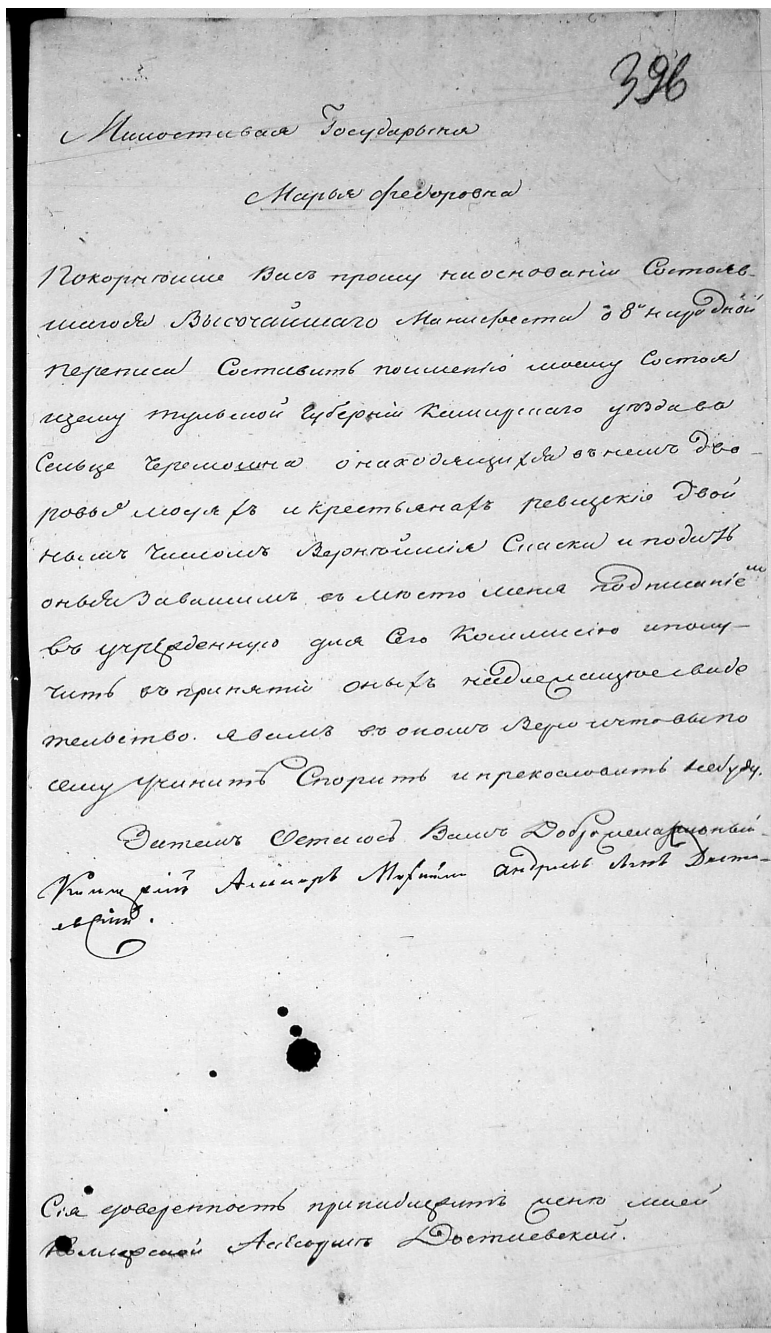 396
Милостивая Государыня
Марья Федоровна
Покорнѣише Васъ прошу наосновании Состояв-
шагося Высочайшаго Манифеста о 8й народной
переписи Составить поимению моему Состоя
щему Тульской Губернии Каширскаго уѣзда въ
Сельце Черемошна онаходящихся въ немъ дво-
ровыя людяхъ и крестьянахъ ревизские двой
нымъ числомъ Вернѣйшия Скаски и подать
оныя Завашимъ въ место меня подписаниемъ
въ учрежденную для Сего Коммисию иполу-
чить въ принятии оныхъ надлежащее свиде
тельство. явамъ въ ономъ Верю ичто выпо
сему учините Спорить и прекословить небуду.
Затемъ Остаюсь Вамъ Доброжелательный
Андреевъ Сынъ Досто-
евский.
Сия доверенность принадлежитъ жене моей
Достоевской.